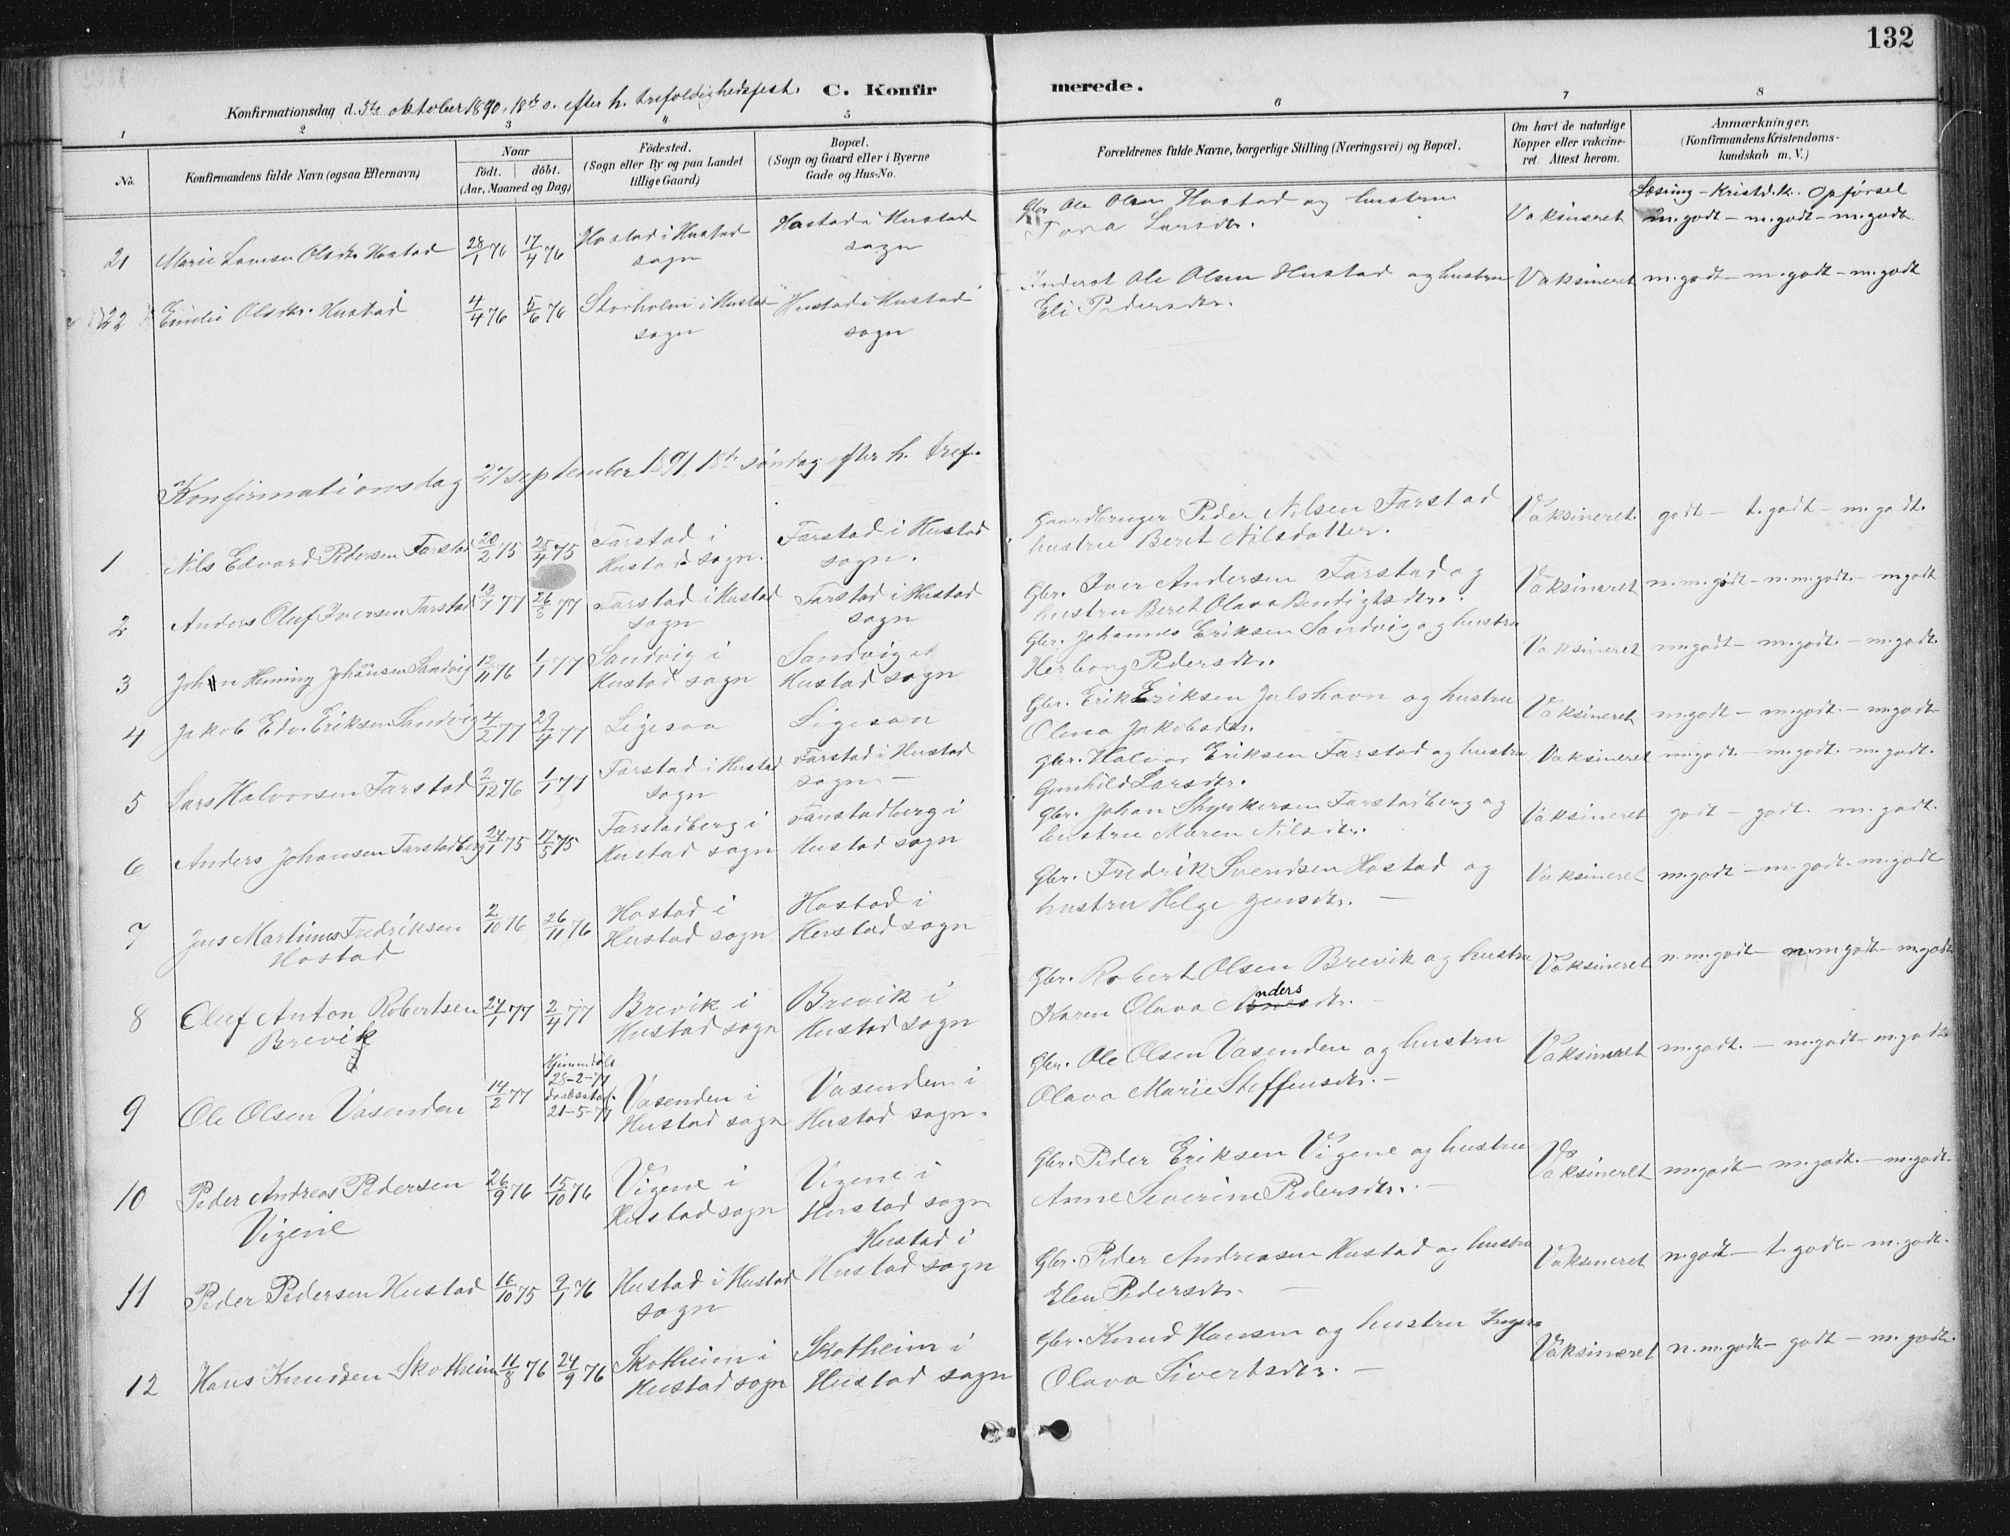 132
C. Konfirmerede.
Konfirmationsdag d. 5te oktober 1890. 18de s. efter h. trefoldighedsfest.
1 2 3 4 5 6 7 8
No. Konfirmandens fulde Navn (ogsaa Efternavn) Naar født. døbt. (Aar, Maaned og Dag) Fødested. (Sogn eller By og paa Landet tillige Gaard) Bopæl. (Sogn og Gaard eller i Byerne Gade og Hus-No. Forældrenes fulde Navne, borgerlige Stilling (Næringsvei) og Bopæl. Om havt de naturlige Kopper eller vakcineret. Attest herom. Anmærkninger. (Konfirmandens Kristendomskundskab m. V.)
Læsning - Kristd.k. Opførsel
21 Marie Olsdtr. Hostad 28/1 76 17/4 76 Hostad i Hustad sogn Hostad i Hustad sogn Gbr. Ole Olsen Hostad og hustru Larsdtr. Vaksineret m.godt - m.godt - m.godt
22 Emilie Olsdtr. Hustad 4/4 76 5/6 76 Storholm i Hustad sogn Hustad i Hustad sogn Inderst Ole Olsen Hustad og hustru Eli Pedersdtr. Vaksineret m.godt - m.godt - m.godt
Konfirmationsdag 27 september 1891 18de søndag efter h. tref.
1 Nils Edvard Pedersen Farstad 20/2 75 25/4 75 Farstad i Hustad sogn. Farstad i Hustad sogn. Gaardbruger Peder Nilsen Farstad hustru Beret Nilsdatter. Vaksineret. godt - t.godt - m.godt.
2 Anders Oluf Iversen Farstad 13/7 77 26/8 77 Farstad i Hustad sogn Farstad i Hustad sogn Gbr. Iver Andersen Farstad og hustru Beret Olava Bendigtsdtr. Vaksineret n.m.godt - n.m.godt. - m.godt
3 Johan Heming Johansen Sandvig 12/11 76 1/1 77 Sandvig i Hustad sogn Sandvig i Hustad sogn Gbr. Johannes Eriksen Sandvig og hustru Herborg Pedersdtr. Vaksineret m.godt - m.godt. - m.godt.
4 Jakob Edv. Eriksen Sandvig 4/2 77 29/4 77 Ligesaa Ligesaa Gbr. Erik Eriksen Julshavn og hustru Olena Jakobsdtr. Vaksineret m.godt - m.godt. - m.godt
5 Lars Halvorsen Farstad 2/12 76 1/1 77 Farstad i Hustad sogn Farstad i Hustad sogn - Gbr. Halvor Eriksen Farstad og hustru Gunhild Larsdtr. Vaksineret m.godt - m.godt. m.godt.
6 Anders Johansen Farstadberg 24/1 75 17/5 75 Farstadberg i Hustad sogn Farstadberg i Hustad sogn Gbr. Johan Styrkersen Farstadberg og hustru Maren Nilsdtr. Vaksineret godt - godt. m.godt.
7 Jens Martinus Fredriksen Hostad 2/10 76 26/11 76 Hostad i Hustad sogn Hostad i Hustad sogn Gbr. Fredrik Svendsen Hostad og hustru Helge Jensdtr. - Vaksineret m.godt - m.godt. m.godt
8 Oluf Anton Robertsen Brevik 24/1 77 2/4 77 Brevik i Hustad sogn Brevik i Hustad sogn Gbr. Robert Olsen Brevik og hustru Karen Olava Andersdtr. - Vaksineret n.m.godt - n.m.godt - m.godt
9 Ole Olsen Vasenden 14/2 77 Hjemmedøbt 28-2-77 21-5-77 Vasenden i Hustad sogn Vasenden i Hustad sogn. Gbr. Ole Olsen Vasenden og hustru Olava Marie Steffensdtr. - Vaksineret m.godt. - m.godt - m.godt
10 Peder Andreas Pedersen Vigene 26/9 76 15/10 76 Vigene i Hustad sogn Vigene i Hustad sogn Gbr. Peder Eriksen Vigene og hustru Anne Severine Pedersdtr. - Vaksineret m.godt - m.godt. - m.godt.
11 Peder Pedersen Hustad 16/10 75 9/1 76 Hustad i Hustad sogn Hustad i Hustad sogn Gbr. Peder Andreasen Hustad og hustru Elen Pedersdtr. - Vaksineret m.godt - t.godt. - m.godt.
12 Hans Knudsen Skotheim 11/8 76 24/9 76 Skotheim i Hustad sogn Skotheim i Hustad sogn Gbr. Knud Hansen og hustru Olava Sivertsdtr. - Vaksineret n.m.godt - godt - m.godt.